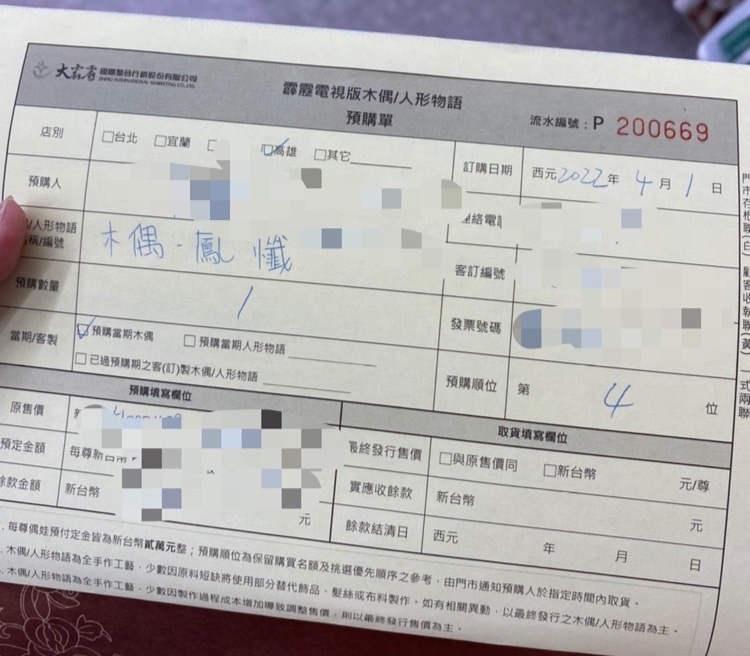 大霹靂國際整合行銷股份有限公司
霹靂電視版木偶/人形物語
預購單
流水編號：P 200669
店別 □台北 □宜蘭 ☑高雄 □其它
訂購日期 西元2022年4月1日
預購人
絡電話
/人形物語
稱/編號
木偶-鳳懺
客訂編號
預購數量 1
發票號碼
當期/客製 ☑預購當期木偶 □預購當期人形物語
□已過預購期之客(訂)製木偶/人形物語
預購順位 第4位
預購填寫欄位
取貨填寫欄位
原售價 新
最終發行售價 □與原售價同 □新台幣 元/尊
預定金額 每尊新台幣
實應收餘款 新台幣 元
餘款金額 新台幣 元
餘款結清日 西元 年 月 日
.每尊偶娃預付定金皆為新台幣貳萬元整；預購順位為保留購買名額及挑選優先順序之參考，由門市通知預購人於指定時間內取貨。
.木偶/人形物語為全手作工藝，少數因原料短缺將使用部分替代飾品、髮絲或布料製作。如有相關異動，以最終發行之木偶/人形物語為主。
.木偶/人形物語為全手作工藝，少數因製作過程成本增加導致調整售價，則以最終發行售價為主。
門市存根聯(白) 顧客收執聯(黃)
式兩聯